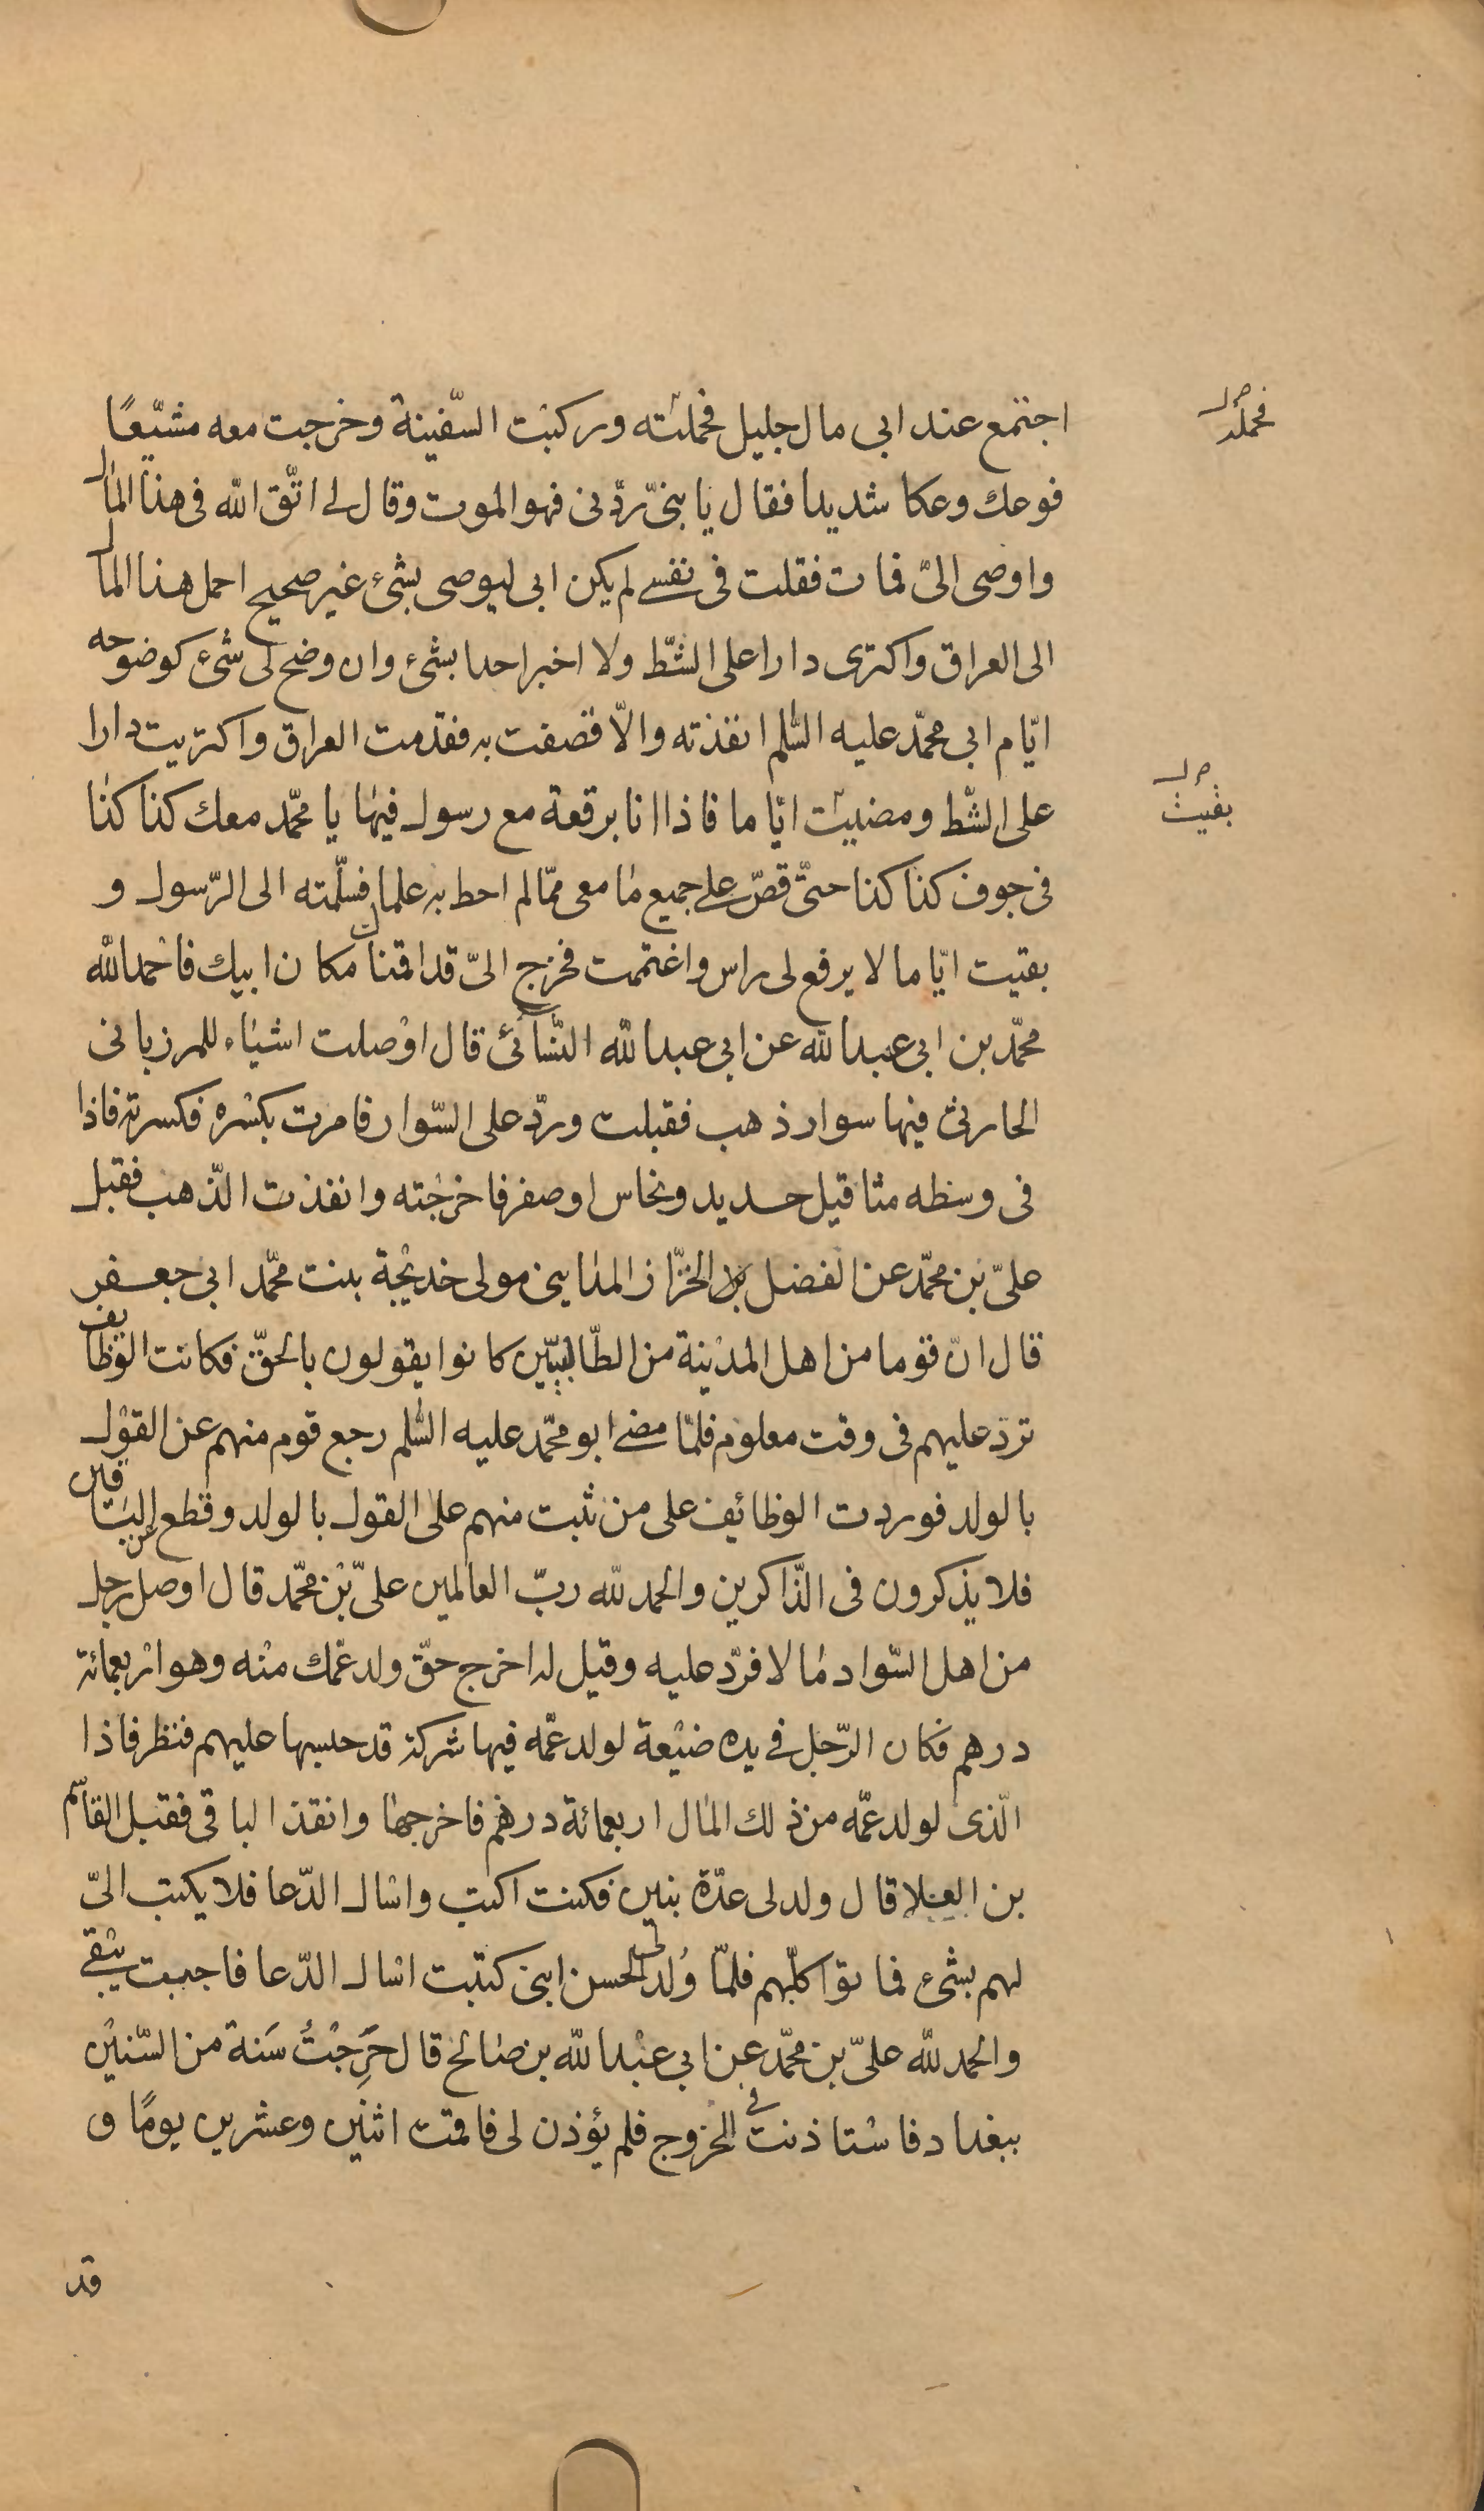 اجتمع عند ابى مال جليل فحملته وركبت السّفينة وخرجت معه مشيّعًا
فحمله
فوعك وعكا شديدا فقال يا بنىّ ردّنى فهو الموت وقال لى اتّق الله فى هذا المال
واوصى الىّ فمات فقلت فى نفسى لم يكن ابى ليوصى بشئ غير صحيح احمل هذا المال
الى العراق واكترى دارا على الشّط ولا اخبر احدا بشئ وان وضح لى شئ كوضوحه
ايّام ابى محمّد عليه السّلم انفذته والّا قصفت به فقدمت العراق واكتريت دارا
على الشّط ومضيت ايّاما فاذا انا برقعة مع رسول فيها يا محمّد معك كذا كذا
بقيت
فى جوف كذا كذا حتّى قصّ علىّ جميع ما معى ممّا لم احط به علما فسلّمته الى الرّسول و
بقيت ايّاما لا يرفع لى راس واغتممت فخرج الىّ قد اقمناك مكان ابيك فاحمد الله
محمّد بن ابى عبد الله عن ابى عبد الله النّسائى قال اوصلت اشياء للمرزبانى
الحارثى فيها سوار ذهب فقبلت وردّ على السّوار فامرت بكسره فكسرته فاذا
فى وسطه مثاقيل حديد ونحاس او صفر فاخرجته وانفذت الذّهب فقبل
علىّ بن محمّد عن الفضل الخزّاز المداينى مولى خديجة بنت محمّد ابى جعفر
قال انّ قوما من اهل المدينة من الطّالبيّين كانوا يقولون بالحقّ فكانت الوظايف
ترد عليهم فى وقت معلوم فلمّا مضى ابو محمّد عليه السّلم رجع قوم منهم عن القول
بالولد فوردت الوظائف على من ثبت منهم على القول بالولد وقطع عن الباقين
فلا يذكرون فى الذّاكرين والحمد لله ربّ العالمين علىّ بن محمّد قال اوصل رجل
من اهل السّواد مالا فردّ عليه وقيل له اخرج حقّ ولد عمّك منه وهو اربعمائة
درهم فكان الرّجل فى يده ضيعة لولد عمّه فيها شركة قد حبسها عليهم فنظر فاذا
الّذى لولد عمّه من ذلك المال اربعمائة درهم فاخرجها وانفذ الباقى فقبل القاسم
بن العلا قال ولد لى عدّة بنين فكنت اكتب واسال الدّعا فلا يكتب الىّ
لهم بشئ فماتوا كلّهم فلمّا وُلد لى الحسن ابنى كتبت اسال الدّعا فاجبت يبقى
والحمد لله علىّ بن محمّد عن ابى عبد الله بن صالح قال خَرَجْتُ سَنة من السّنين
ببغداد فاستاذنت فى الخروج فلم يؤذن لى فاقمت اثنين وعشرين يومًا و
قد